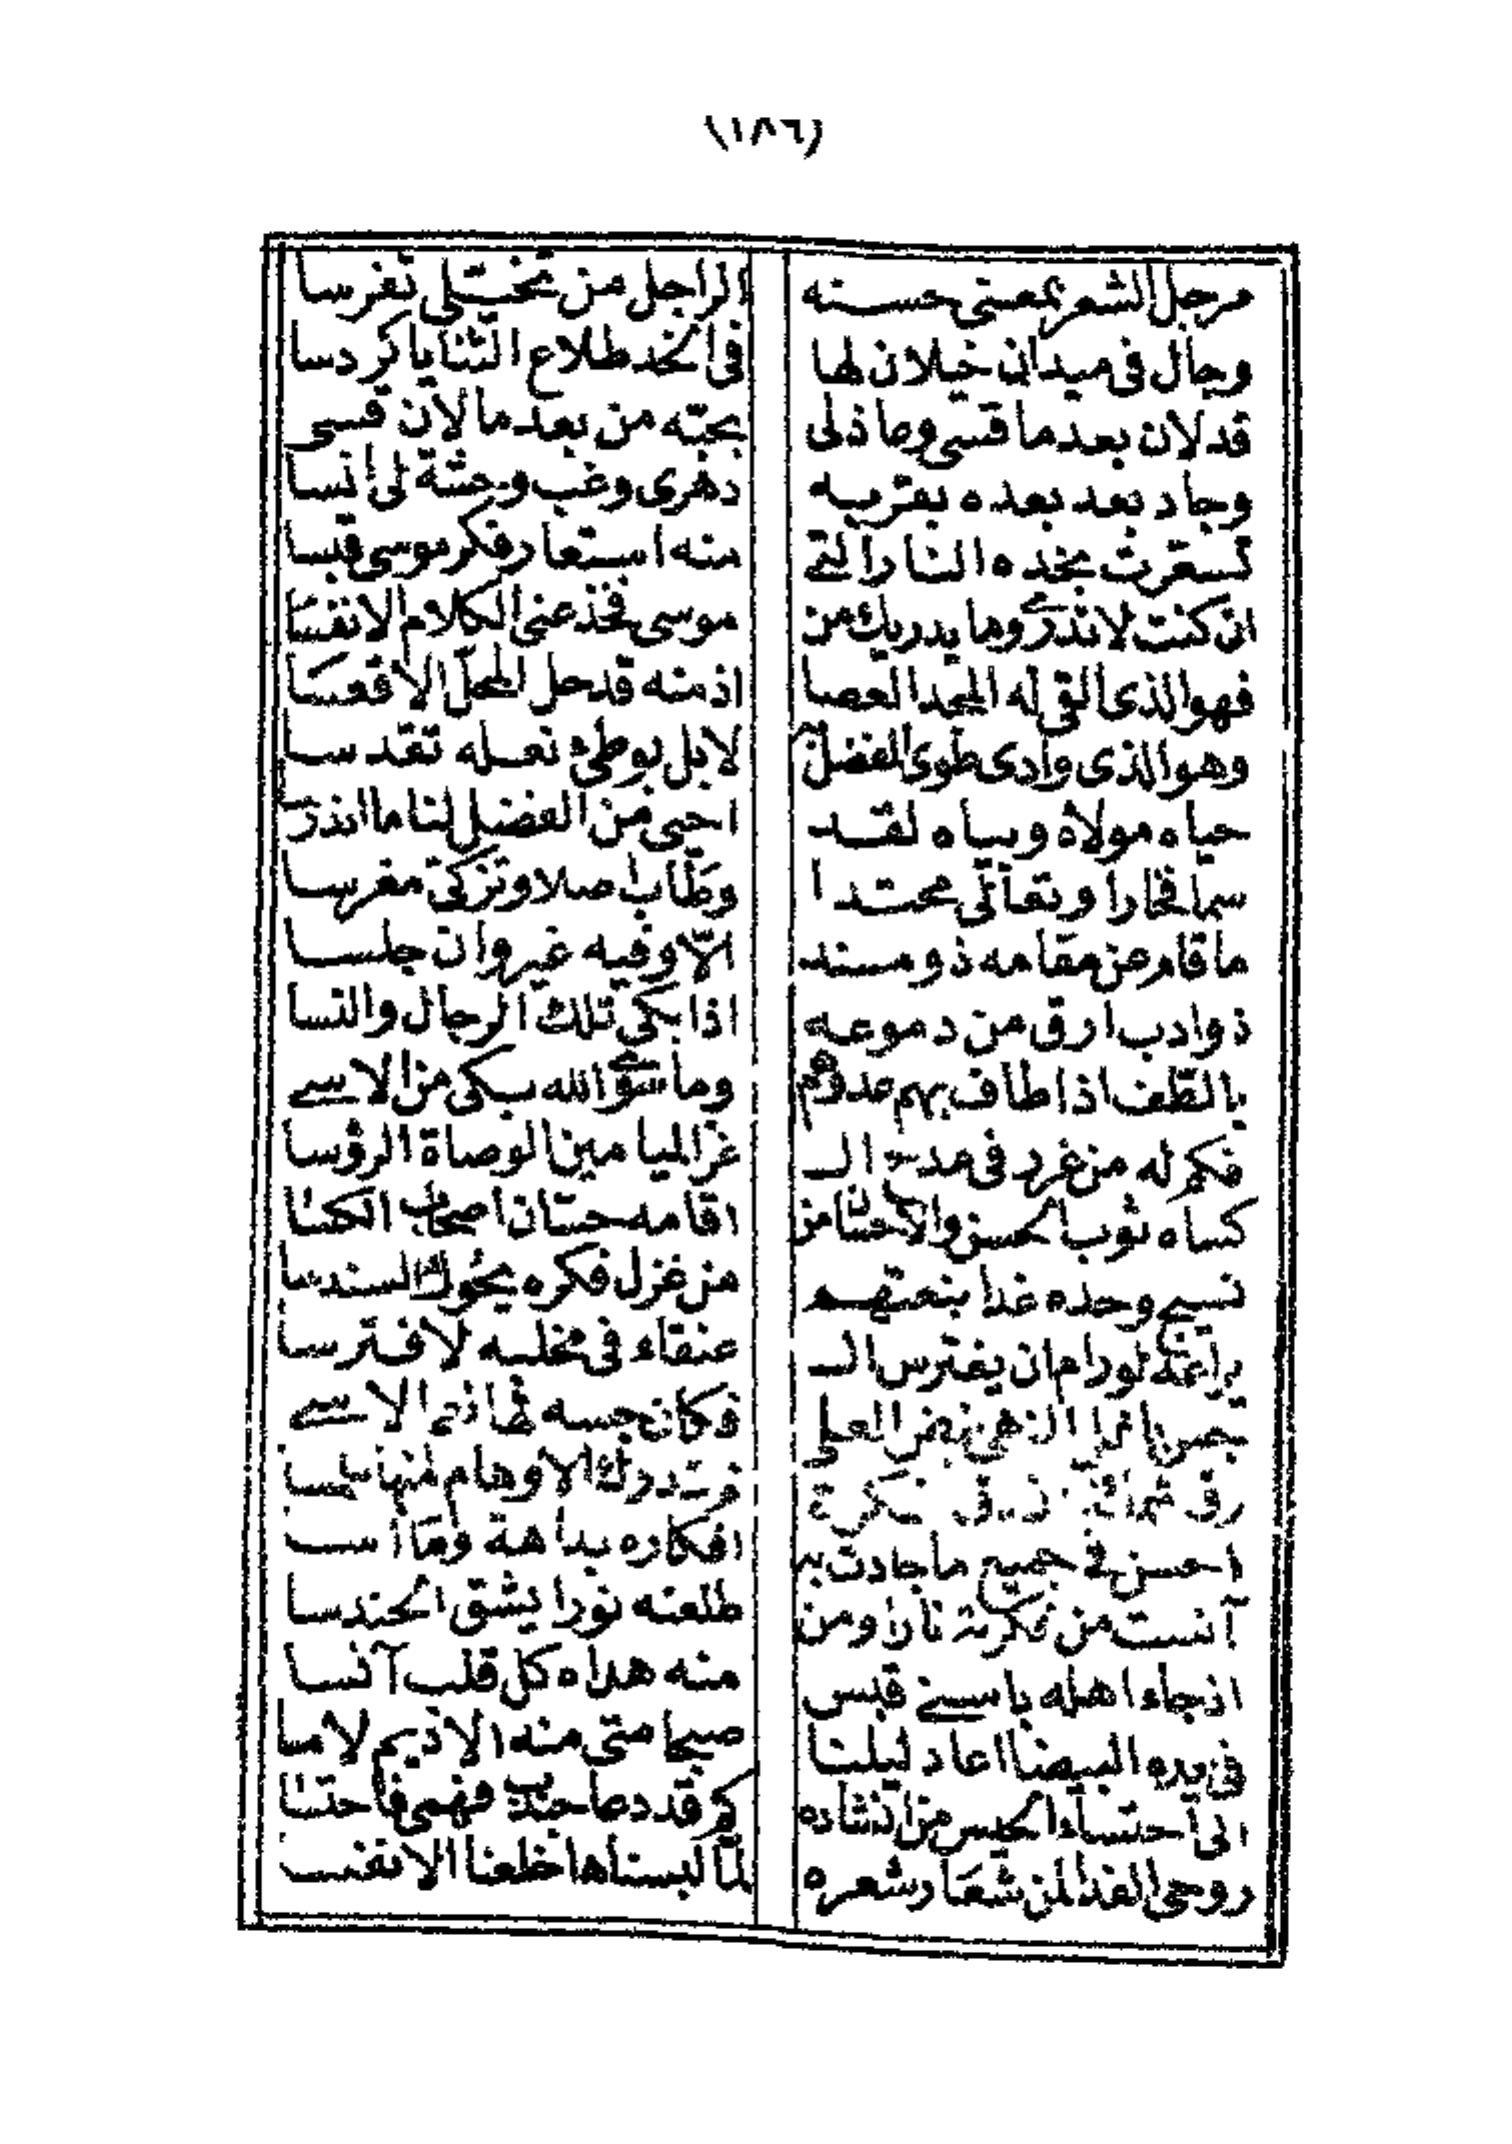 (١٨٦)
مرجل الشعر بمعنى حسنه الراجل من تخيّلى تفرسا
وجال فى ميدان خيلان لها فى الخد طلاع الثنايا كردسا
قد لان بعد ما قسى وما ذلى بحبّه من بعد ما لان قسى
وجاد بعد بعده بقربه دهرى وغب وحشة لى انسا
تسعّرت بخده النار التى منه استعار فكر موسى قبسا
ان كنت لا تدرى وما يدريك من موسى فخذ عنى الكلام الانفسا
فهو الذى القى له المجد العصا اذ منه قد حل المحلّ الاقعسا
وهو الذى وادى طوى الفضل لا بل بوطئ نعله تقدسا
حياه مولاه وبياه لقد احيى من الفضل لنا ما اندرسا
سما فخارا وتعالى محتدا وطاب اصلا وتزكّى مغرسا
ما قام عن مقامه ذو مسند الّا وفيه غيره ان جلسا
ذو ادب ارق من دموعه اذا بكى تلك الرجال والنسا
بالطّف اذ اطاف بهم عدوهم وما سوى الله بكى من الاسى
فكم له من غرر فى مدح الـ غر الميامين الوصاة الرؤسا
كساه ثوب الحسن والاحسان من اقامه حسّان اصحاب الكسا
نسيج وحده غدا بنعتهم من غزل فكره يحوك السندسا
يراعه لو رام ان يفترس الـ عنقاء فى مخلبه لافترسا
نبض العلى فكان جسه الاسى
رقى فكرة الاوهام منها
احسن فى جميع ما جادت به افكاره بداهة وما اسا
آنست من فكرته نارا ومن طلعته نورا يشق الحندسا
اذ جاء اهله باسنى قبس منه هداه كل قلب آنسا
فى يده البيضا اعاد ليلنا صبحا متى منه الاديم لامسا
الى احتساء الكيس من انشاده كم قد دعا حبب فهمى فاحتسا
روحى الفدا لمن شعار شعره لمّا لبسناها خلعنا الانفسا